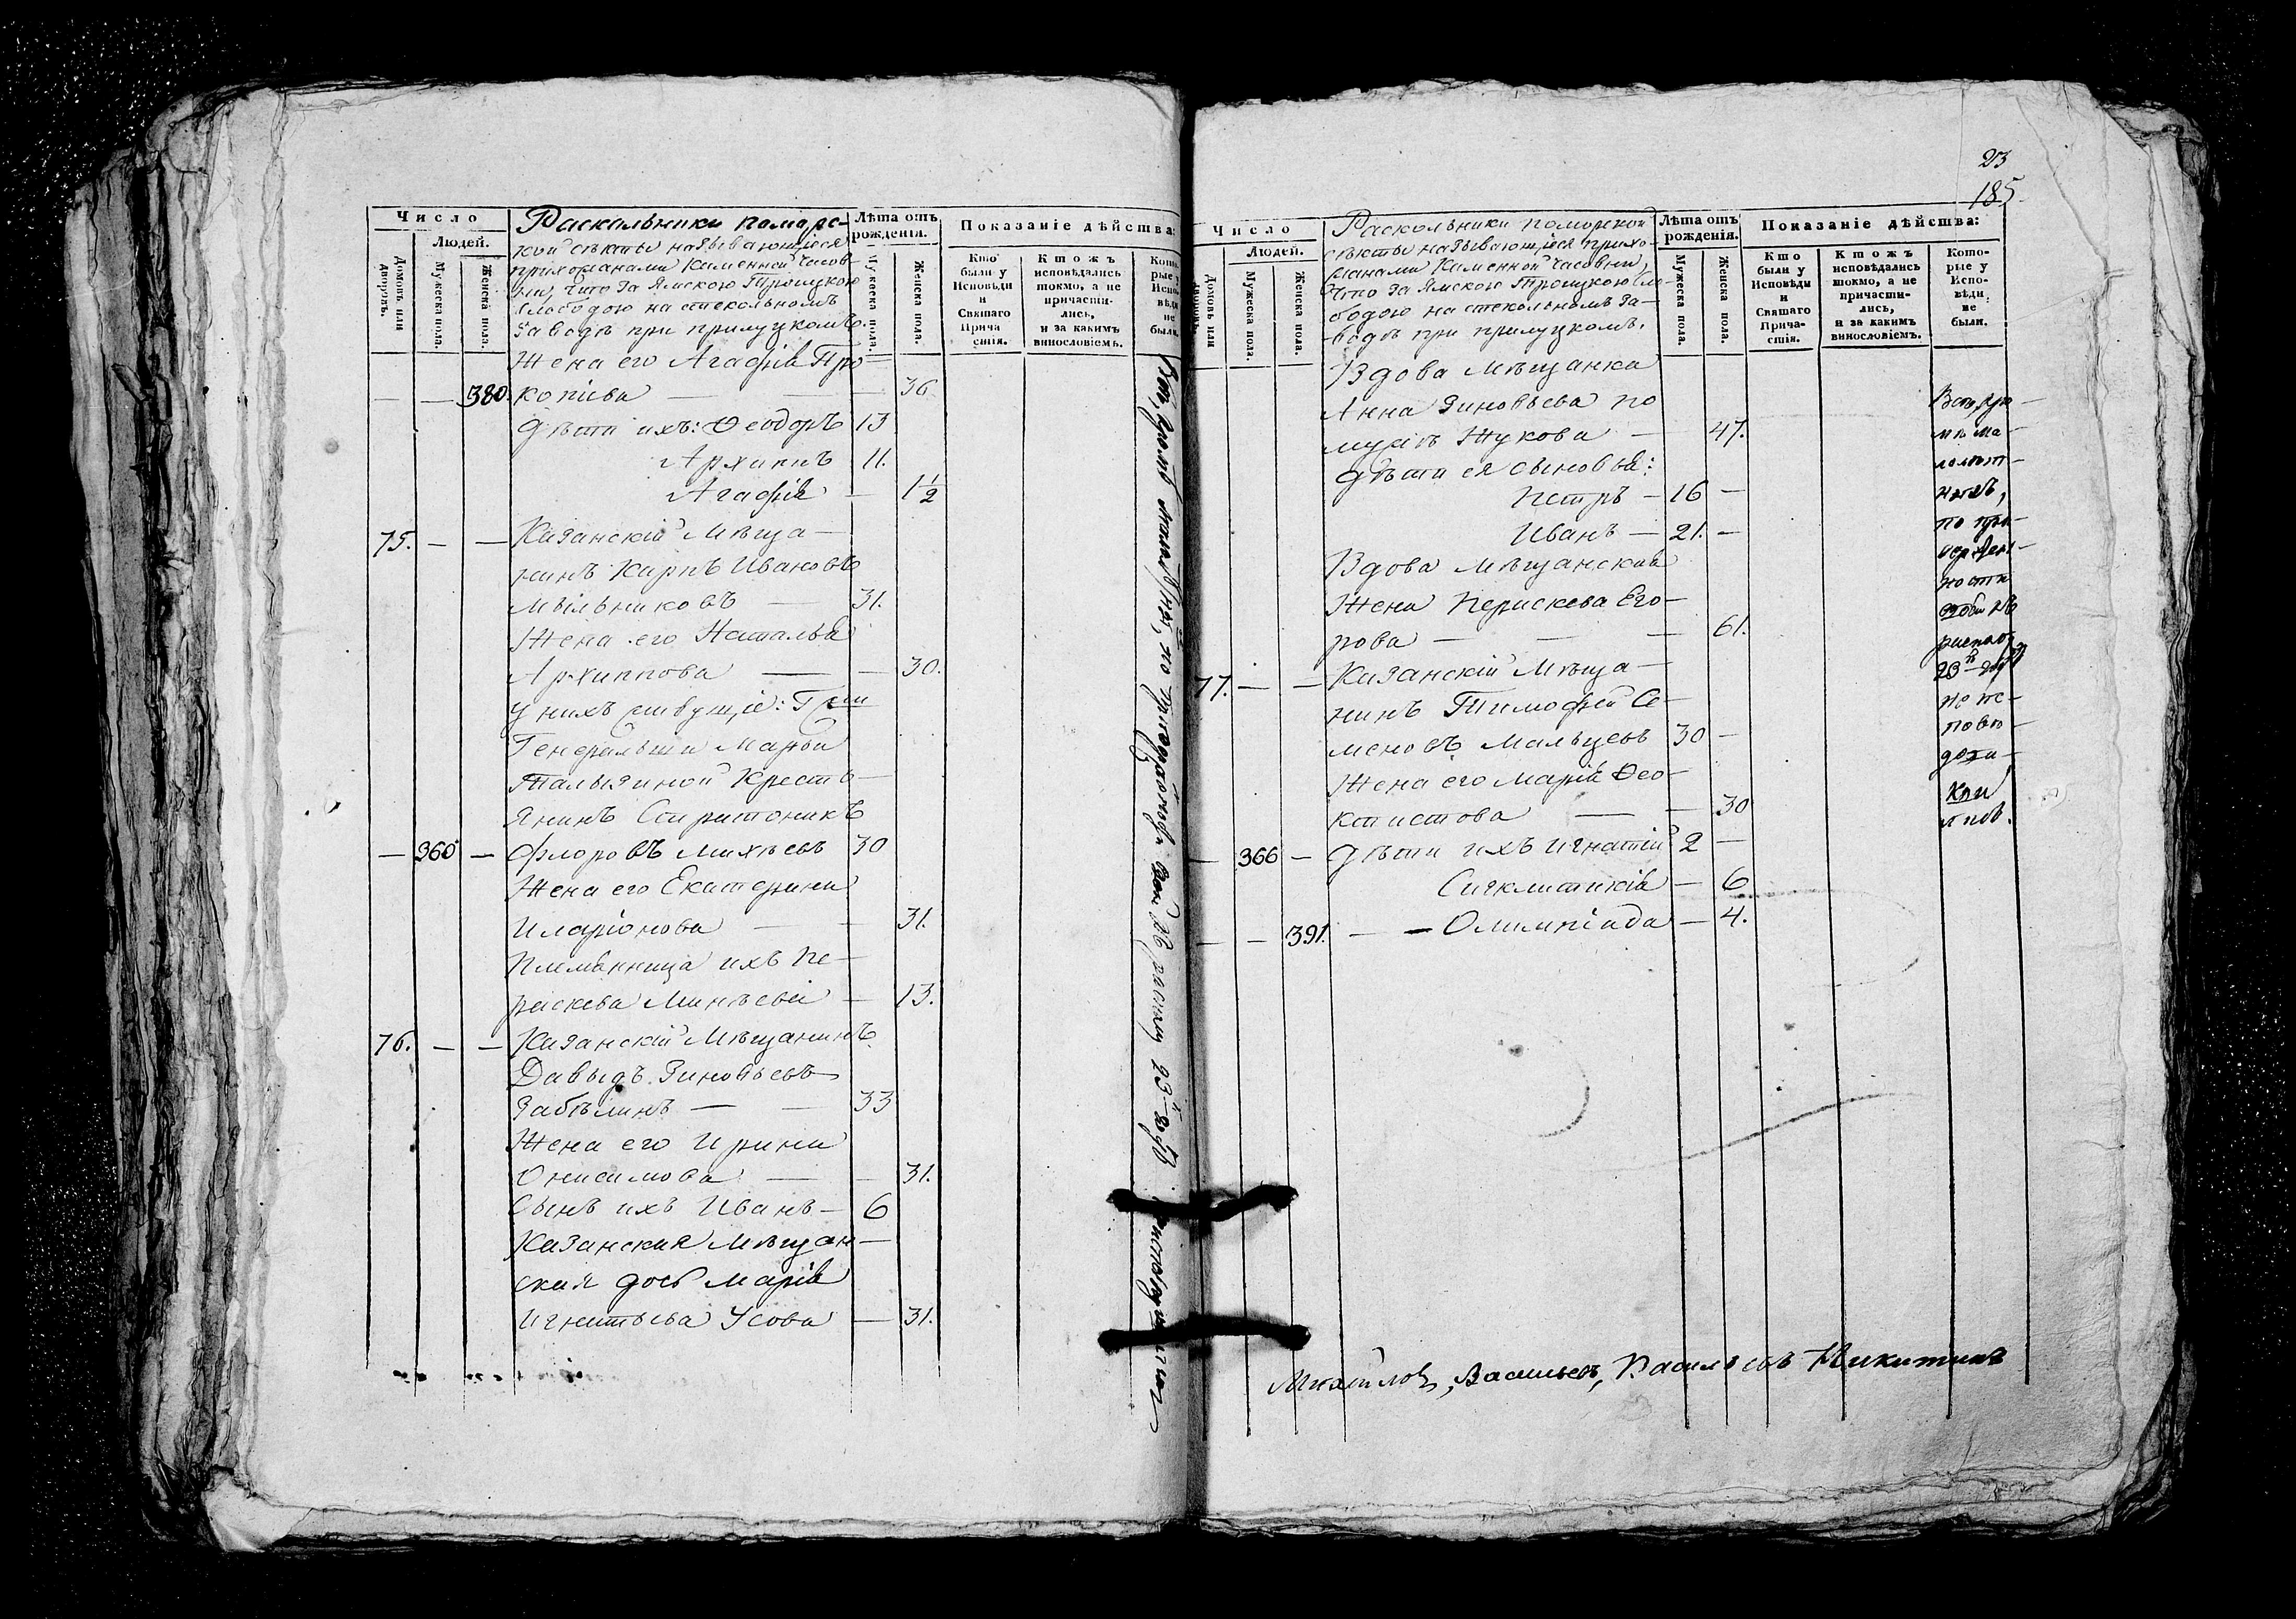 Число
Людей.
Домовъ или дворовъ.
Мужеска пола.
Женска пола.
Раскольники поморс-
кой секты называющiеся
прихожанами Каменной часов-
ни, что за Ямскою Троицкою
слободою на стекольномъ
заводѣ при прилуцкомъ.
Лѣта отъ рожденiя.
Мужеска пола.
Женска пола.
Показанiе дѣйства:
Кто были у Исповѣди и Святаго Прича стiя.
Ктожъ исповѣдались токмо, а не причасти- лись, и за какимъ винословiемъ.
Кото рые у Испо- вѣди не были.
Жена его Агафiя Про
— — 380. копiева — — 36
Дѣти ихъ: Ѳеодоръ 13
Архиппъ 11.
Агафiя — 1 1/2
75. — — Казанскiй Мѣща—
нинъ Карпъ Ивановъ
Мыльниковъ — 31.
Жена его Наталья
Архиппова — — 30.
у нихъ живущiе: Г жи
Генеральши Марьи
Талызиной Кресть—
янинъ Спиритоникъ
— 360 — Флоровъ Михѣевъ 30
Жена его Екатерина
Иларiонова — — 31.
Племянница ихъ Пе—
раскева Минѣева — 13.
76. — — Казанскiй Мѣщанинъ
Давыдъ Зиновьевъ
Забѣлинъ — — 33
Жена его Ирина
Онисимова — — 31.
Сынъ ихъ Иванъ — 6
Казанская Мѣщан—
ская дочь Марiя
Игнатьева Усова — 31.
23
185.
Число
Людей.
Домовъ или дворовъ.
Мужеска пола.
Женска пола.
Раскольники поморской
секты называющiеся прихо-
жанами Каменной часовни,
что за Ямскою Троицкою сло-
бодою на стекольномъ за-
водѣ при прилуцкомъ.
Лѣта отъ рожденiя.
Мужеска пола.
Женска пола.
Показанiе дѣйства:
Кто были у Исповѣди и Святаго Прича- стiя.
Ктожъ исповѣдались токмо, а не причасти- лись, и за какимъ винословiемъ.
Кото- рые у Испо- вѣди не были.
Вдова Мѣщанка
Анна Зиновьева по
мужѣ Жукова — 47.
Дѣти ея сыновья:
Петръ — 16 —
Иванъ — 21. —
Вдова мѣщанская
Жена Пераскева Его—
рова — — — 61.
77. — — Казанскiй Мѣща—
нинъ Тимофей Се—
меновъ Мальцевъ 30 —
Жена его Марiя Ѳео—
ктистова — — 30
— 366 — Дѣти ихъ Игнатiй 2 —
Сигклитикiя — 6
— — 391. — — Олимпiада — 4.
ма—
лолѣт—
ныхъ,
по при—
вержен—
ности
къ
расколу
23
не ис—
повѣ—
Михайловъ, Васильевъ, Васильевъ Никитинъ